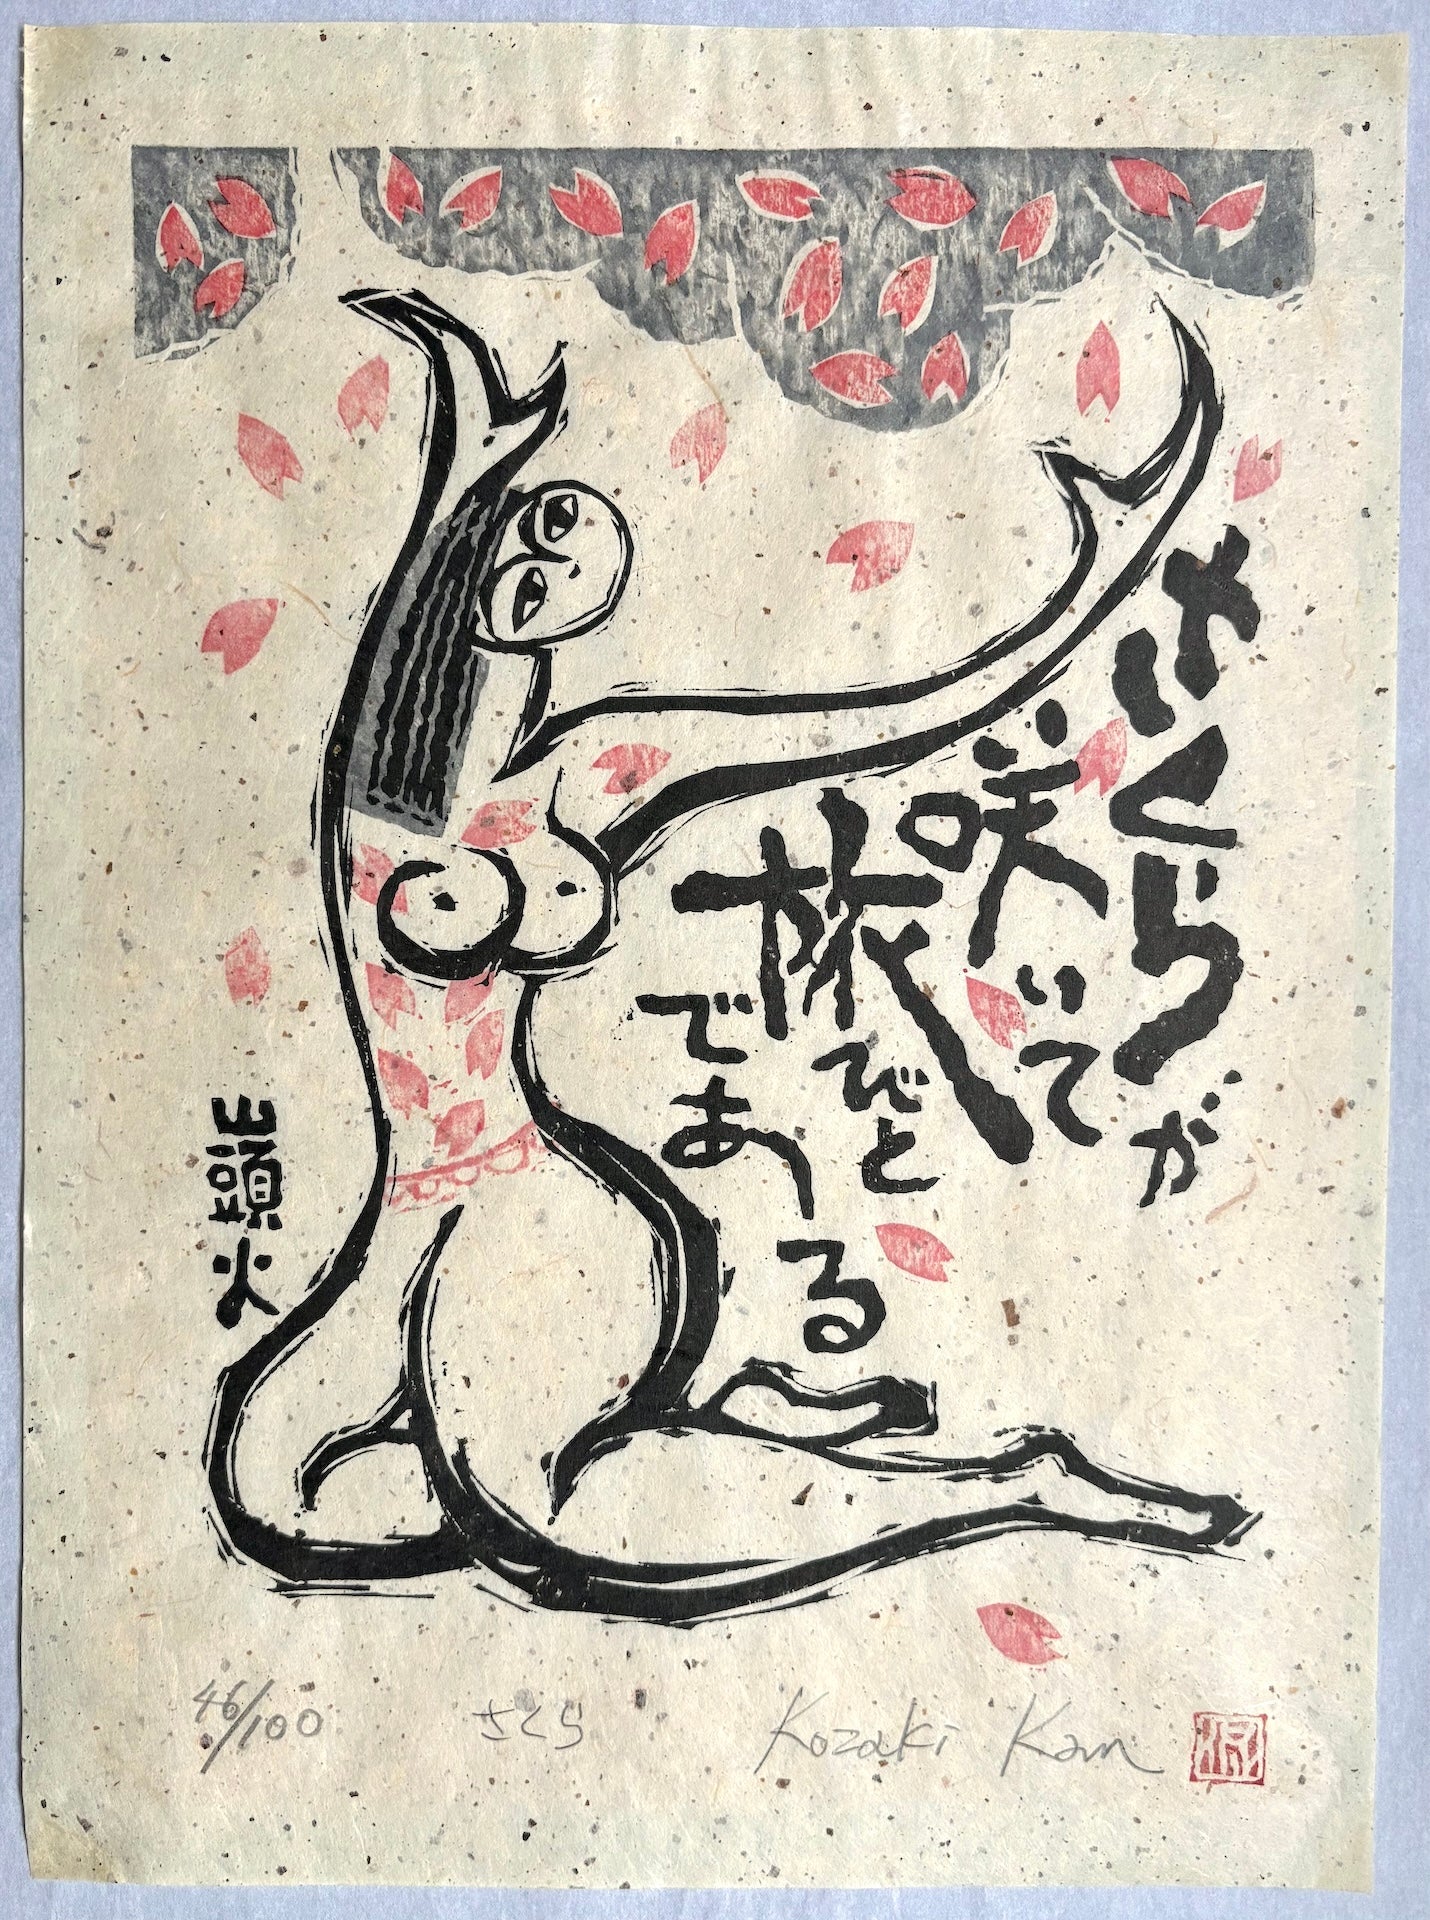 さくらが
咲いて
旅びと
である
山頭火
46/100 さくら Kozaki Kan
侃